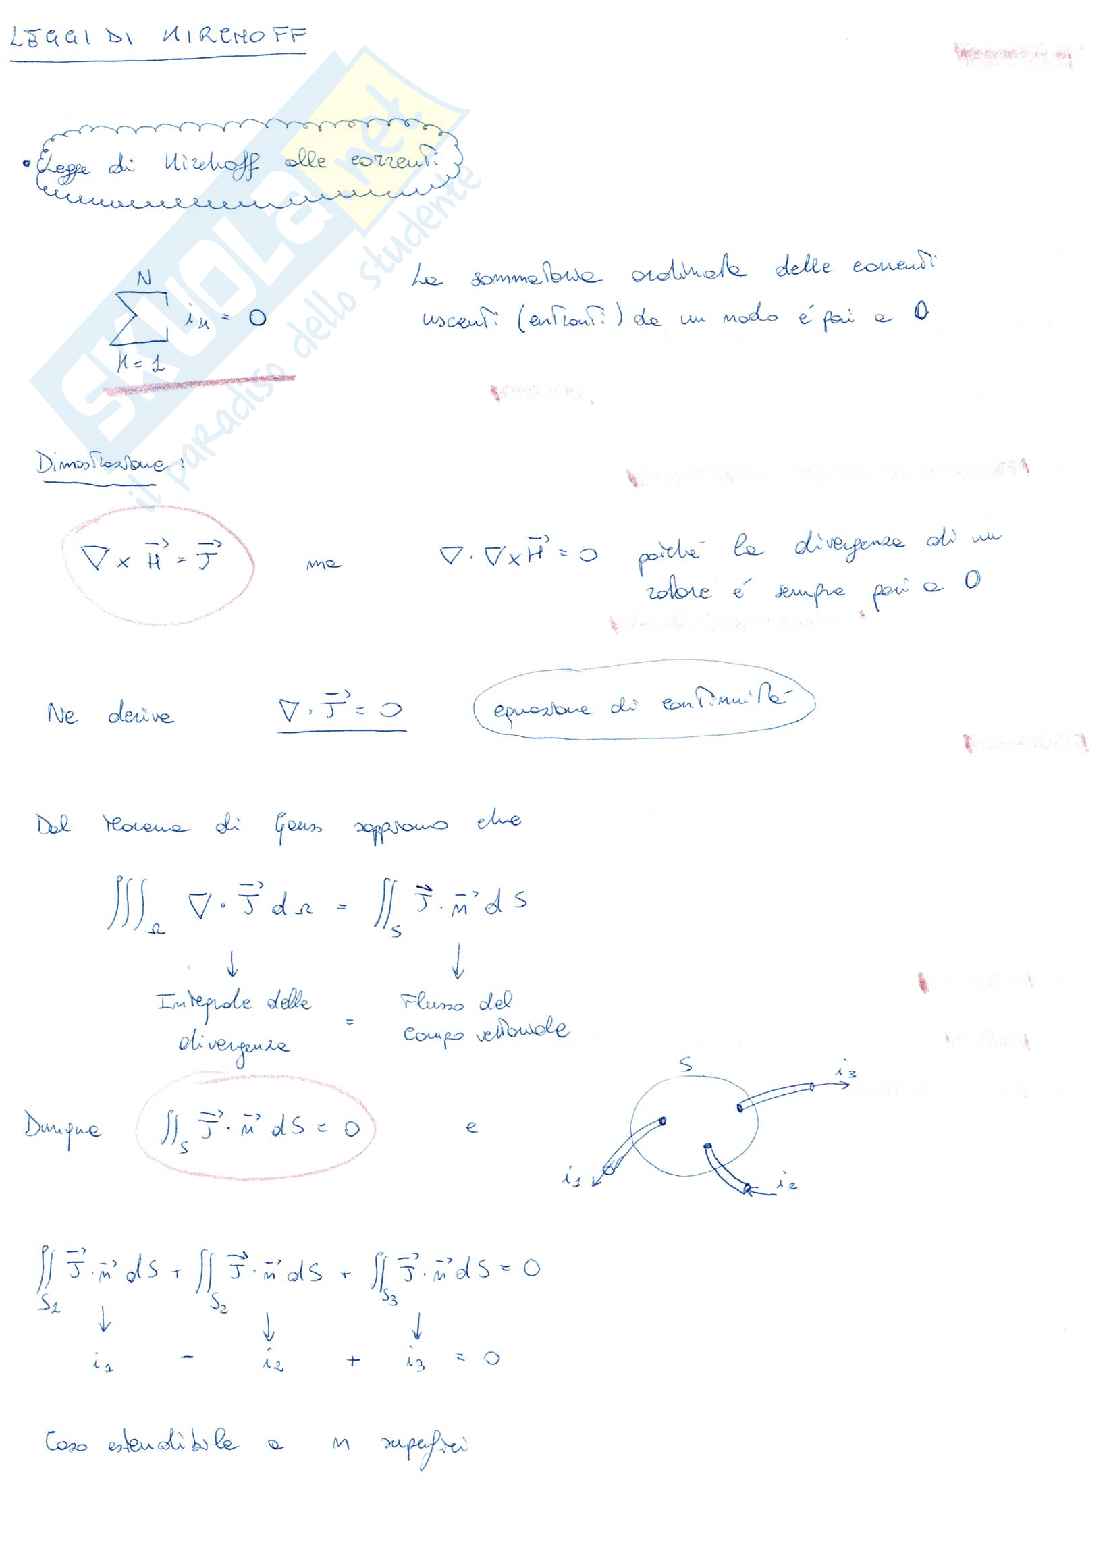 LEGGI DI KIRCHOFF
• Legge di Kirchoff alle correnti
N
∑ iₖ = 0
K = 1
La sommatoria ordinata delle correnti
uscenti (entranti) da un nodo é pari a 0
Dimostrazione:
∇ × H⃗ = J⃗ ma ∇ · ∇ × H⃗ = 0 poiché la divergenza di un
rotore é sempre pari a 0
Ne deriva ∇ · J⃗ = 0 equazione di continuità
Dal teorema di Gauss sappiamo che
∭_Ω ∇ · J⃗ dΩ = ∬_S J⃗ · n⃗ dS
↓ ↓
Integrale della = Flusso del
divergenza campo vettoriale
Dunque ∬_S J⃗ · n⃗ dS = 0 e
S
i₃
i₁
i₂
∬_S₁ J⃗ · n⃗ dS + ∬_S₂ J⃗ · n⃗ dS + ∬_S₃ J⃗ · n⃗ dS = 0
↓ ↓ ↓
i₁ - i₂ + i₃ = 0
Caso estendibile a n superfici
SKUOLA.net
il paradiso dello studente